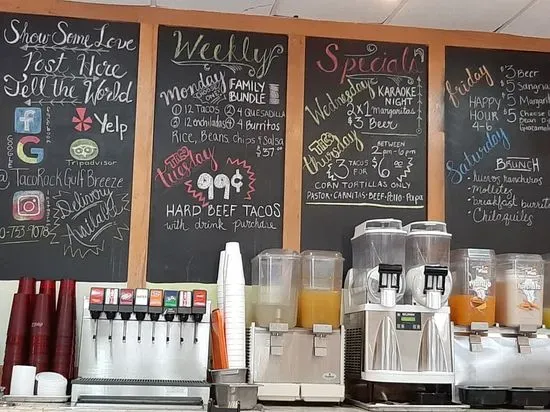 Show Some Love
Post Here
Tell the World
Yelp
Google
Tripadvisor
@TacoRockGulf Breeze
Delivery
Available
0-753-9078
Weekly
Monday
FAMILY
BUNDLE
① 12 TACOS ③ 4 QUESADILLA
② 12 enchiladas ④ 4 Burritos
Rice, Beans chips & Salsa
$37.00
Tuesday
99¢
HARD BEEF TACOS
with drink purchase
Specials
Wednesday
KARAOKE
NIGHT
2x1 Margaritas
$3 Beer
Thursday
BETWEEN
2pm-6pm
3 TACOS FOR $6
CORN TORTILLAS ONLY
PASTOR-CARNITAS-BEEF-POLLO-Papa
Friday
HAPPY
HOUR
4-6
$3 Beer
$5 Sangria
$5 Margarit
$5 Cheese
Bean D
Guacamo
Saturday
BRUNCH
•huevos rancheros
•Molletes
•breakfast burrito
•Chilaquiles